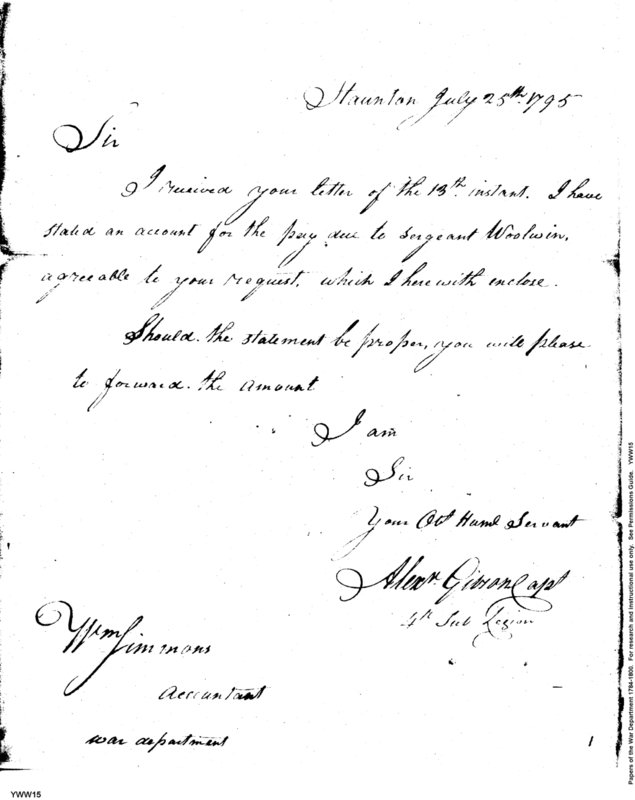 Staunton July 25th 1795
Sir
I received your letter of the 13th instant. I have
stated an account for the pay due to Sergeant Woolwin,
agreeable to your request, which I herewith enclose.
Should the statement be proper, you will please
to forward the amount
I am
Sir
Your Obt Huml Servant
Alexr Gibson Capt
4th Sub Legion
Wm Simmons
accountant
war department
1
YWW15
Papers of the War Department 1784-1800. For research and instructional use only. See Permissions Guide. YWW15